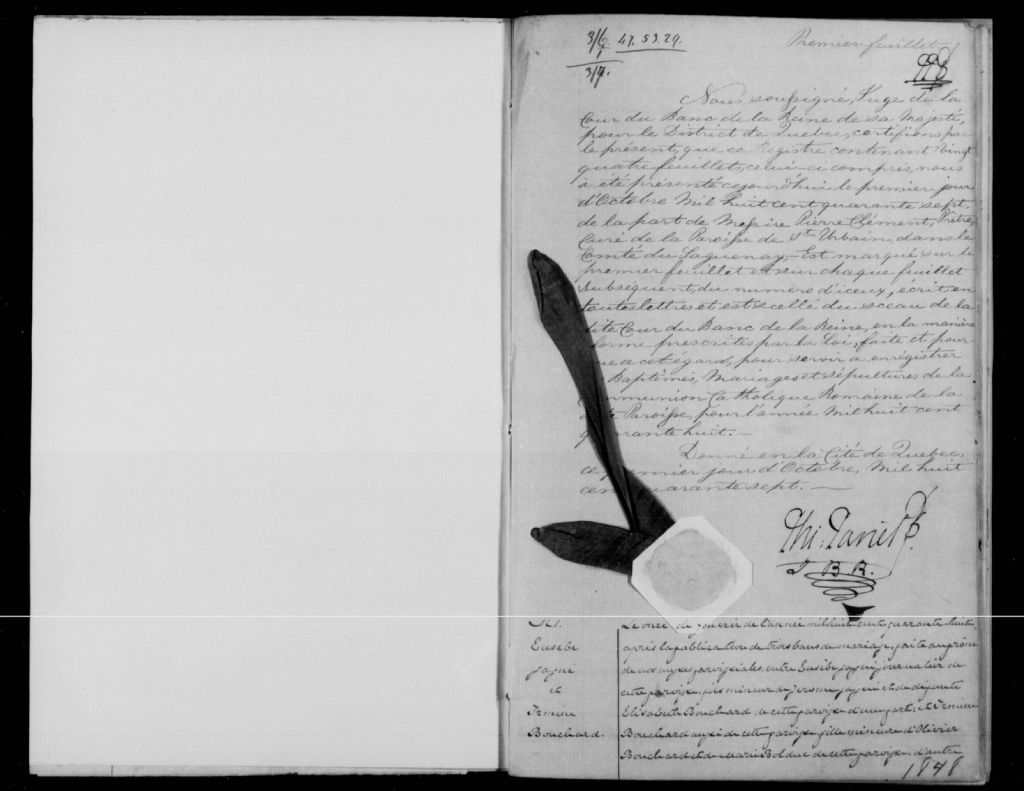 3/6 47.53.29.
1
3/7.
Premier feuillet
Nous, soussigné, Juge de la
Cour du Banc de la Reine de sa Majesté,
pour le District de Quebec, certifions par
le présent, que ce Registre contenant vingt
quatre feuillets, celui-ci compris, nous
a été présenté cejourd'hui le premier jour
d'Octobre Mil huit cent quarante sept,
de la part de Messire Pierre Clément, Prêtre,
Curé de la Paroisse de St. Urbain, dans le
Comté du Saguenay,- Est marqué sur le
premier feuillet et sur chaque feuillet
Subséquent, du numéro d'iceux, écrit en
toutes lettres et est scellé du sceau de la
dite Cour du Banc de la Reine, en la manière
forme prescrites par la Loi, faite et pour
à cet égard, pour servir à enrégistrer
Baptêmes, Mariages et Sépultures de la
Communion Catholique Romaine de la
Paroisse, pour l'année Mil huit cent
quarante huit.-
Donné en la Cité de Quebec,
ce premier jour d'Octobre, Mil huit
cent quarante sept.-
J B R.
M1.
Eusebe
et
Irmine
Bouchard.
Le onze de janvier de l'année mil huit cent quarante huit,
après la publication de trois bans de mariage, faite au prône
de nos messes paroissiales, entre Eusèbe journalier de
cette paroisse, fils mineur de Jerome et de défunte
Elisabeth Bouchard de cette paroisse d'une part; et Irmine
Bouchard aussi de cette paroisse, fille mineure d'Olivier
Bouchard et de Marie Bolduc de cette paroisse, d'autre
1848